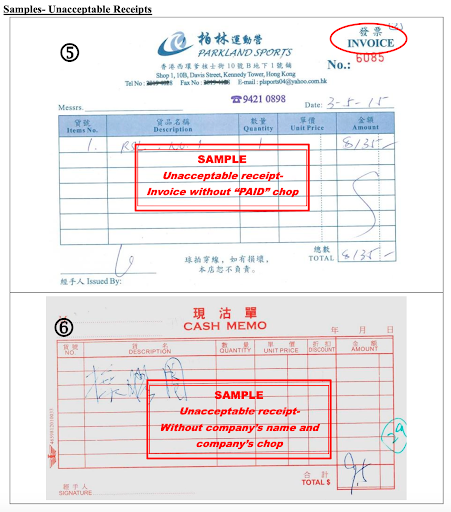 Samples- Unacceptable Receipts
⑤
柏林運動營
PARKLAND SPORTS
發票
INVOICE
香港西環爹核士街10號B地下1號舖
Shop 1, 10B, Davis Street, Kennedy Tower, Hong Kong
Tel No : Fax No : E-mail : plsports04@yahoo.com.hk
No.: 6085
☎9421 0898
Messrs.
Date: 3-5-15
貨號 貨品名稱 數量 單價 金額
Items No. Description Quantity Unit Price Amount
1. 1 8135
SAMPLE
Unacceptable receipt-
Invoice without “PAID” chop
球拍穿線，如有損壞，
本店恕不負責。
總數
TOTAL 8135
經手人 Issued By:
⑥
現沽單
CASH MEMO
年 月 日
貨號 貨名 數量 單價 折扣 金額
NO. DESCRIPTION QUANTITY UNIT PRICE DISCOUNT AMOUNT
SAMPLE
Unacceptable receipt-
Without company’s name and
company’s chop
合計
TOTAL $ 95
經手人
SIGNATURE